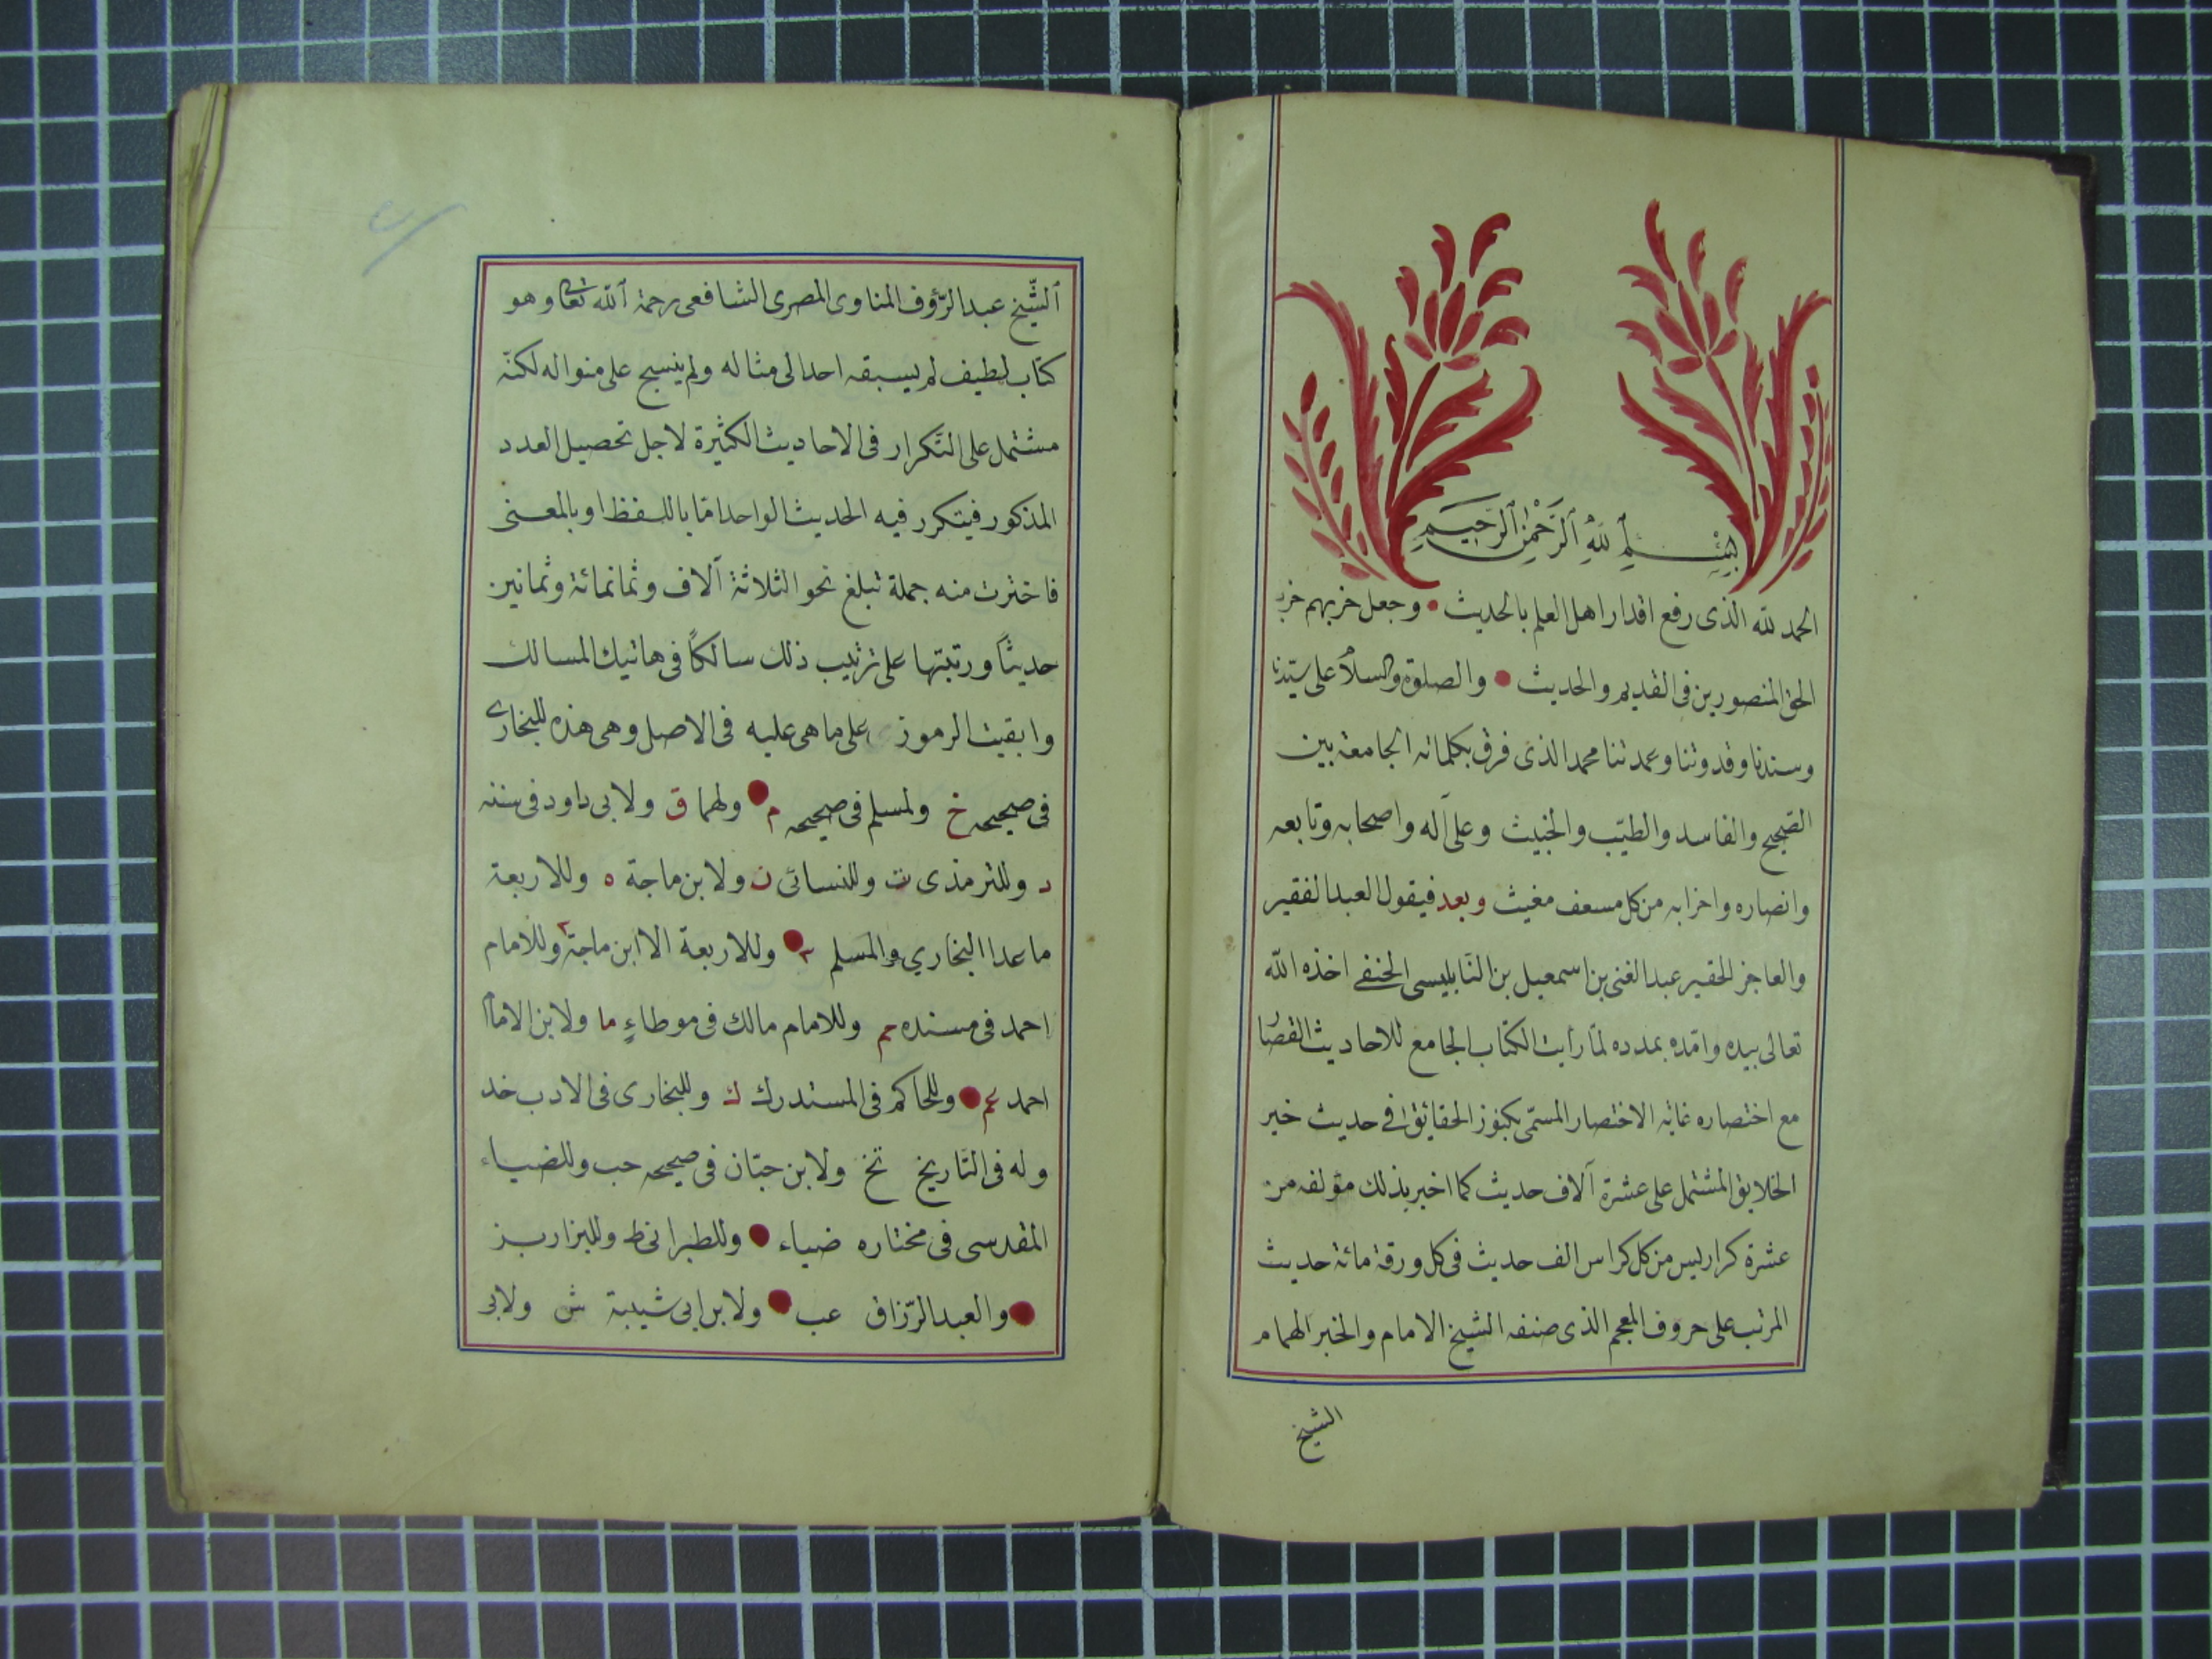 بسم الله الرحمن الرحيم
الحمد لله الذى رفع اقدار اهل العلم بالحديث • وجعل حزبهم حزب
الحق المنصورين فى القديم والحديث • والصلوة والسلام على سيّدنا
وسندنا وقدوتنا وعمدتنا محمد الذى فرق بكلماته الجامعة بين
الصّحيح والفاسد والطيّب والخبيث وعلى آله واصحابه وتابعه
وانصاره واحزابه من كل مسعف مغيث وبعد فيقول العبد الفقير
والعاجز الحقير عبد الغنى بن اسمعيل بن النّابليسى الحنفى اخذه الله
تعالى بيده وامّده بمدده لمّا رأيت الكتاب الجامع للاحاديث القصار
مع اختصاره غاية الاختصار المسمّى بكنوز الحقايق فى حديث خير
الخلايق المشتمل على عشرة آلاف حديث كما اخبر بذلك مؤلفه من
عشرة كراريس من كل كراس الف حديث فى كل ورقة مائة حديث
المرتب على حروف المعجم الذى صنفه الشيخ الامام والخبر الهمام
الشيخ
الشّيخ عبد الرّؤف المناوى المصرى الشافعى رحمة الله تعالى وهو
كتاب لطيف لم يسبقه احد الى مثاله ولم ينسج على منواله لكنّه
مشتمل على التكرار فى الاحاديث الكثيرة لاجل تحصيل العدد
المذكور فيتكرر فيه الحديث الواحد امّا باللفظ او بالمعنى
فاخترت منه جملة تبلغ نحو الثلاثة آلاف وثمانمائة وثمانين
حديثاً ورتبتها على ترتيب ذلك سالكاً فى هاتيك المسالك
وابقيت الرموز على ما هى عليه فى الاصل وهى هذه للبخارى
فى صحيحه خ ولمسلم فى صحيحه م • ولهما ق ولابى داود فى سننه
د وللترمذى ت وللنسائى ن ولابن ماجة ه وللاربعة
ما عدا البخاري والمسلم ٢ • وللاربعة الا ابن ماجة ٢ وللامام
احمد فى مسنده حم وللامام مالك فى موطاءٍ ما ولابن الامام
احمد عم • وللحاكم فى المستدرك ك وللبخارى فى الادب خد
وله فى التّاريخ تخ ولابن حبّان فى صحيحه حب وللضياء
المقدسى فى مختاره ضياء • وللطبرانى ط وللبزار بز
• والعبد الرّزاق عب • ولابن ابى شيبة ش ولابى